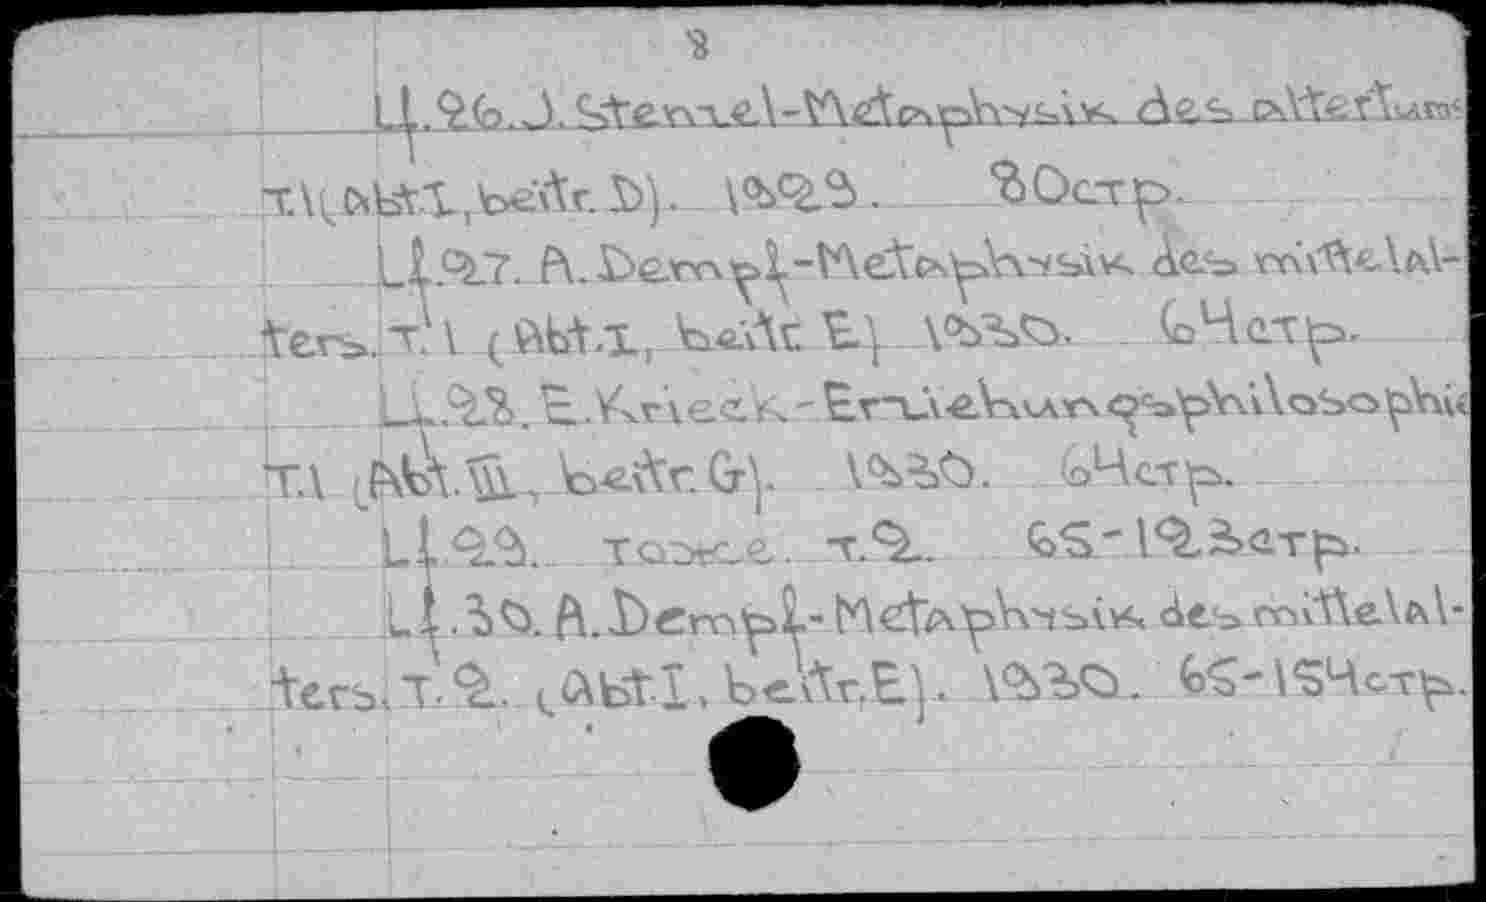 8
Lf.26.J.Stenzel-Metaphysik des altertums
т.1(Abt.I, beitr. D). 1929. 80стр.
Lf.27. A.Dempf-Metaphysik des mittelal-
ters. т.1 (Abt.I, beitr. E) 1930. 64стр.
Lf.28. E.Krieck-Erziehungsphilosophie
т.1 (Abt.III, beitr.G). 1930. 64стр.
Lf.29. тоже. т.2. 65-123стр.
Lf.30. A.Dempf-Metaphysik des mittelal-
ters. т.2. (Abt.I, beitr.E). 1930. 65-154стр.